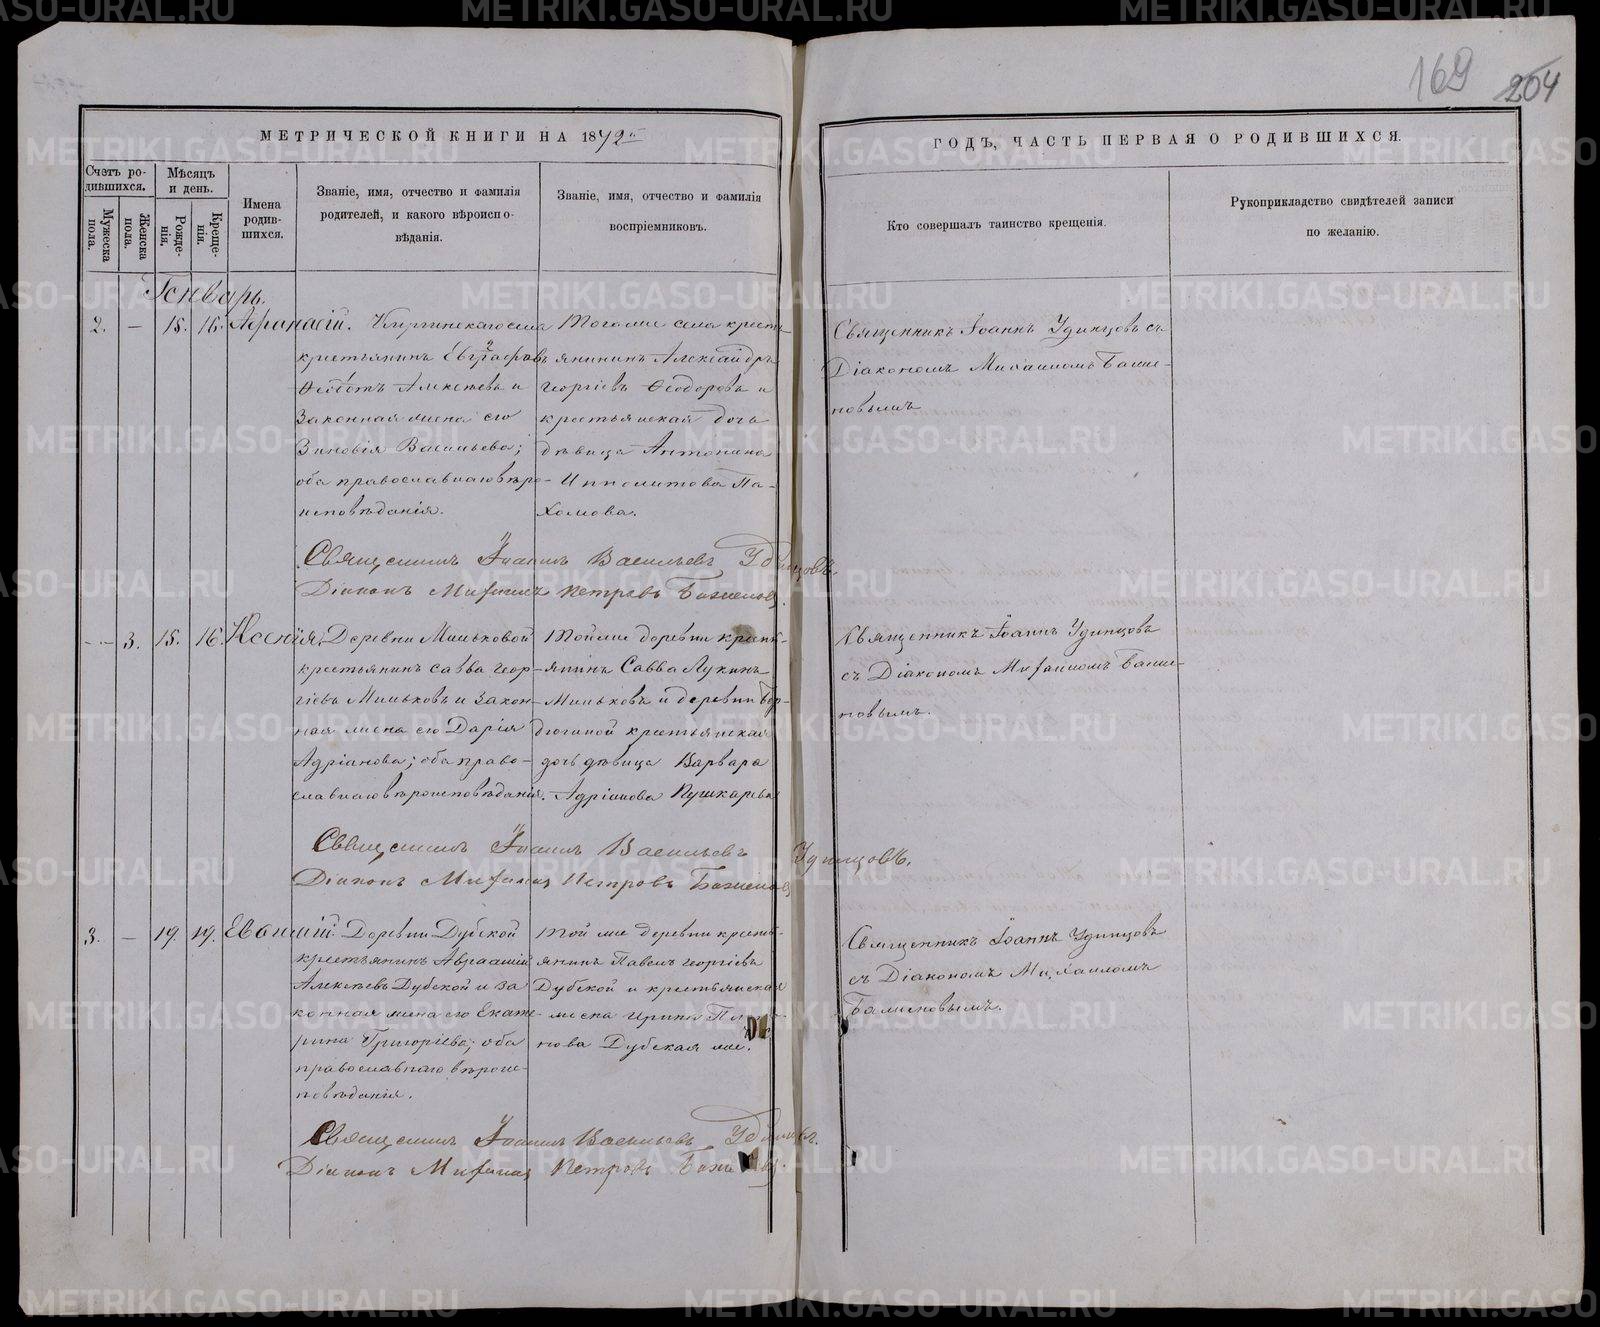 169 204
МЕТРИЧЕСКОЙ КНИГИ НА 1872й
ГОДЪ, ЧАСТЬ ПЕРВАЯ О РОДИВШИХСЯ.
Счетъ ро-
дившихся.
Мужеска
пола.
Женска
пола.
Мѣсяцъ
и день.
Рожде-
нія.
Креще-
нія.
Имена
родив-
шихся.
Званіе, имя, отчество и фамилія
родителей, и какого вѣроиспо-
вѣданія.
Званіе, имя, отчество и фамилія
воспріемниковъ.
Кто совершалъ таинство крещенія.
Рукоприкладство свидѣтелей записи
по желанію.
Генварь.
2. — 15. 16. Афанасій.
села
крестьянинъ Евграфовъ
Ѳеодотъ Алексѣевъ и
законная жена его
Зиновія Васильева;
оба православнаго вѣро-
исповѣданія.
Того же села кресть-
янинъ Александръ
Георгіевъ Ѳеодоровъ и
крестьянская дочь
дѣвица Антонина
Ипполитова Па-
хомова.
Священникъ Іоаннъ Удинцовъ съ
Діакономъ Михаиломъ Баже-
новымъ
Священникъ Іоаннъ Васильевъ Удинцовъ.
Діаконъ Михаилъ Петровъ Баженовъ.
— 3. 15. 16. Ксенія.
Деревни Миньковой
крестьянинъ Савва Геор-
гіевъ Миньковъ и закон-
ная жена его Дарія
Адріанова; оба право-
славнаго вѣроисповѣданія.
Той же деревни кресть-
янинъ Савва Лукинъ
Миньковъ и деревни
крестьянская
дочь дѣвица Варвара
Адріанова Пушкарева
Священникъ Іоаннъ Удинцовъ
съ Діакономъ Михаиломъ Баже-
новымъ.
Священникъ Іоаннъ Васильевъ Удинцовъ.
Діаконъ Михаилъ Петровъ Баженовъ
3. — 19. 19. Евфимій.
Деревни Дубской
крестьянинъ Авраамій
Алексѣевъ Дубской и за
конная жена его Екате-
рина Григоріева; оба
православнаго вѣроис-
повѣданія.
Той же деревни кресть-
янинъ Павелъ Георгіевъ
Дубской и крестьянская
жена Ирина
нова Дубская же.
Священникъ Іоаннъ Удинцовъ
съ Діакономъ Михаиломъ
Баженовымъ.
Священникъ Іоаннъ Васильевъ Удинцовъ.
Діаконъ Михаилъ Петровъ Баженовъ.
METRIKI.GASO-URAL.RU